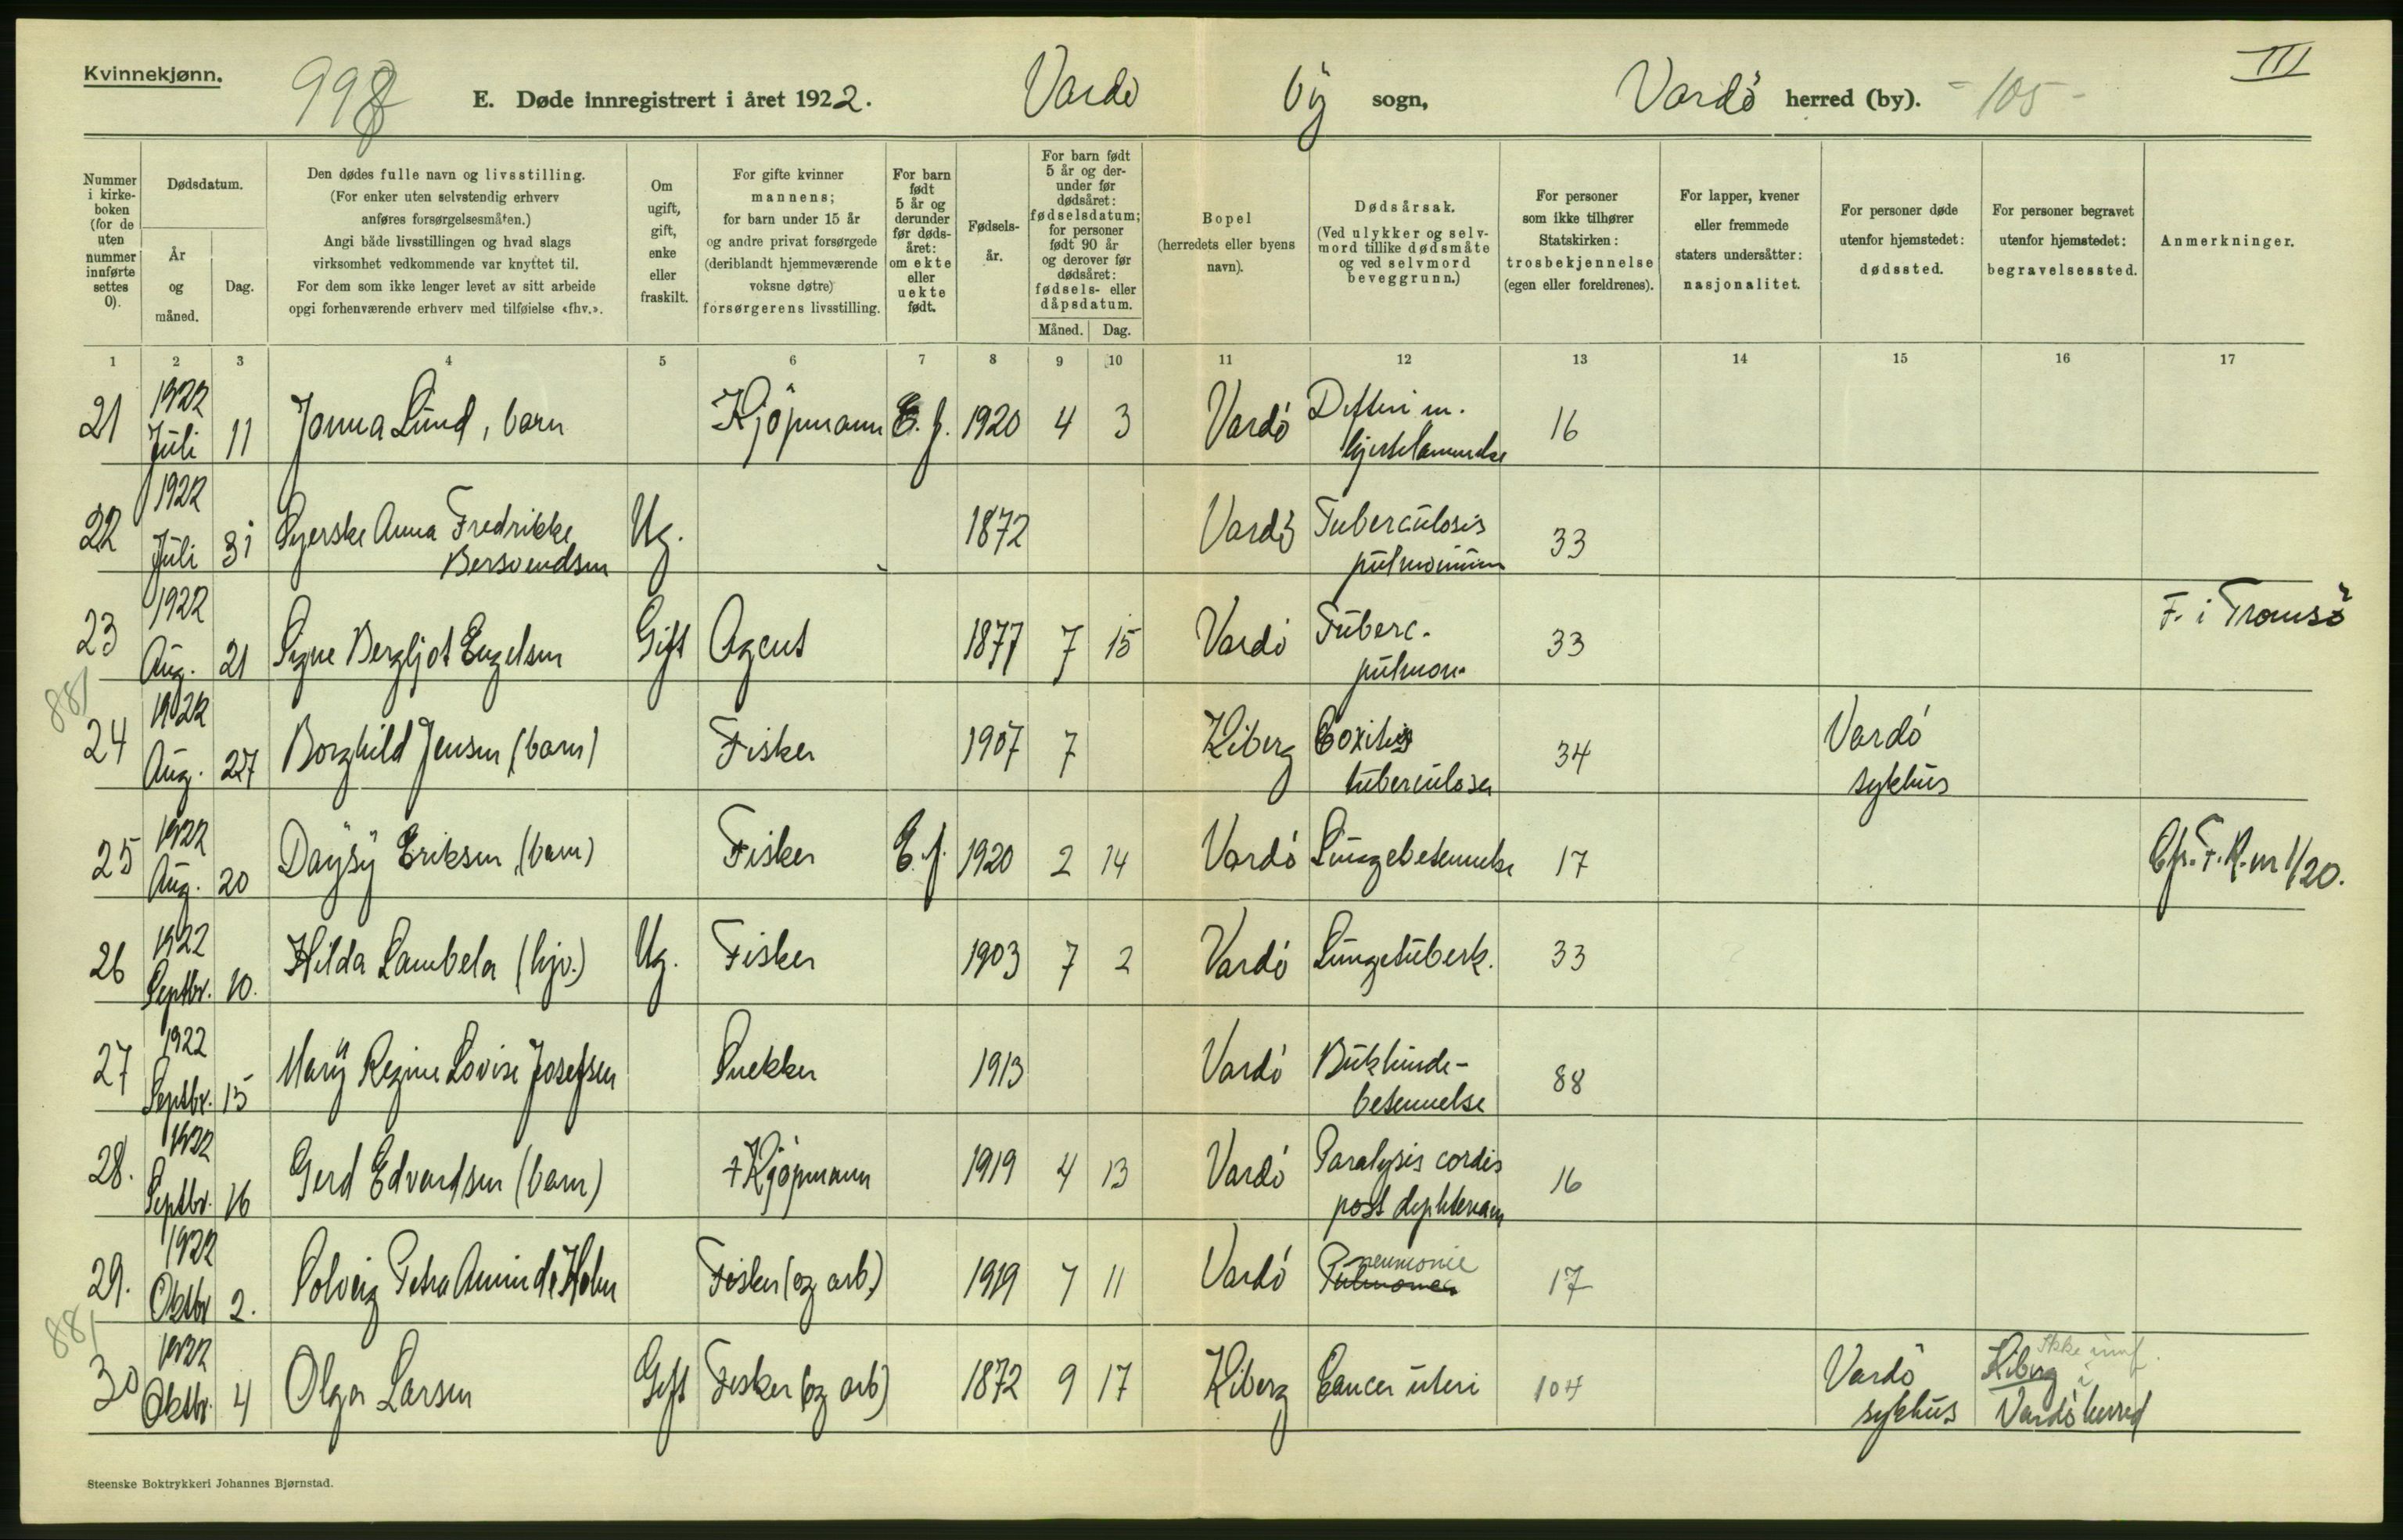 Kvinnekjønn.
998
E. Døde innregistrert i året 1922.
Vardø by sogn,
Vardø herred (by).
-105-
III
Nummer i kirkeboken (for de uten nummer innførte settes 0).
Dødsdatum.
År og måned.
Dag.
Den dødes fulle navn og livsstilling.
(For enker uten selvstendig erhverv
anføres forsørgelsesmåten.)
Angi både livsstillingen og hvad slags
virksomhet vedkommende var knyttet til.
For dem som ikke lenger levet av sitt arbeide
opgi forhenværende erhverv med tilføielse «fhv.».
Om ugift, gift, enke eller fraskilt.
For gifte kvinner
mannens;
for barn under 15 år
og andre privat forsørgede
(deriblandt hjemmeværende
voksne døtre)
forsørgerens livsstilling.
For barn født 5 år og derunder før dødsåret: om ekte eller uekte født.
Fødselsår.
For barn født 5 år og derunder før dødsåret: fødselsdatum; for personer født 90 år og derover før dødsåret: fødsels- eller dåpsdatum.
Måned. Dag.
Bopel
(herredets eller byens
navn).
Dødsårsak.
(Ved ulykker og selvmord tillike dødsmåte
og ved selvmord
beveggrunn.)
For personer
som ikke tilhører
Statskirken:
trosbekjennelse
(egen eller foreldrenes).
For lapper, kvener
eller fremmede
staters undersåtter:
nasjonalitet.
For personer døde
utenfor hjemstedet:
dødssted.
For personer begravet
utenfor hjemstedet:
begravelsessted.
Anmerkninger.
1 2 3 4 5 6 7 8 9 10 11 12 13 14 15 16 17
21 1922 Juli 11 Jonna Lund, barn Kjöpmann E. f. 1920 4 3 Vardö Difteri m. hjertelammelse 16
22 1922 Juli 31 Syerske Anna Fredrikke Bersvendsen Ug. 1872 Vardö Tuberculosis pulmonum 33
23 1922 Aug. 21 Signe Bergljot Engelsen Gift Agent 1877 7 15 Vardö Tuberc. pulmon. 33 F. i Tromsö
881
24 1922 Aug. 27 Borghild Jensen (barn) Fisker 1907 7 Kiberg Coxitis tuberculosa 34 Vardö sykehus
25 1922 Aug. 20 Daysy Eriksen (barn) Fisker E. f. 1920 2 14 Vardö Lungebetennelse 17 Cfr. F. R. nr 1/20.
26 1922 Septbr. 10. Hilda Lambela (hjv.) Ug. Fisker 1903 7 2 Vardö Lungetuberk. 33
27 1922 Septbr. 15 Mary Regine Lovise Josefsen Snekker 1913 Vardö Bukhindebetennelse 88
28. 1922 Septbr. 16 Gerd Edvardsen (barn) + Kjöpmann 1919 4 13 Vardö Paralysis cordis post diphteriam 16
29. 1922 Oktbr 2. Solveig Petra Holm Fisker (og arb.) 1919 7 11 Vardö Pneumonie 17
881
30 1922 Oktbr. 4 Olga Larsen Gift Fisker (og arb) 1872 9 17 Kiberg Cancer uteri 104 Vardö sykehus Kiberg i Vardö herred
Steenske Boktrykkeri Johannes Bjørnstad.